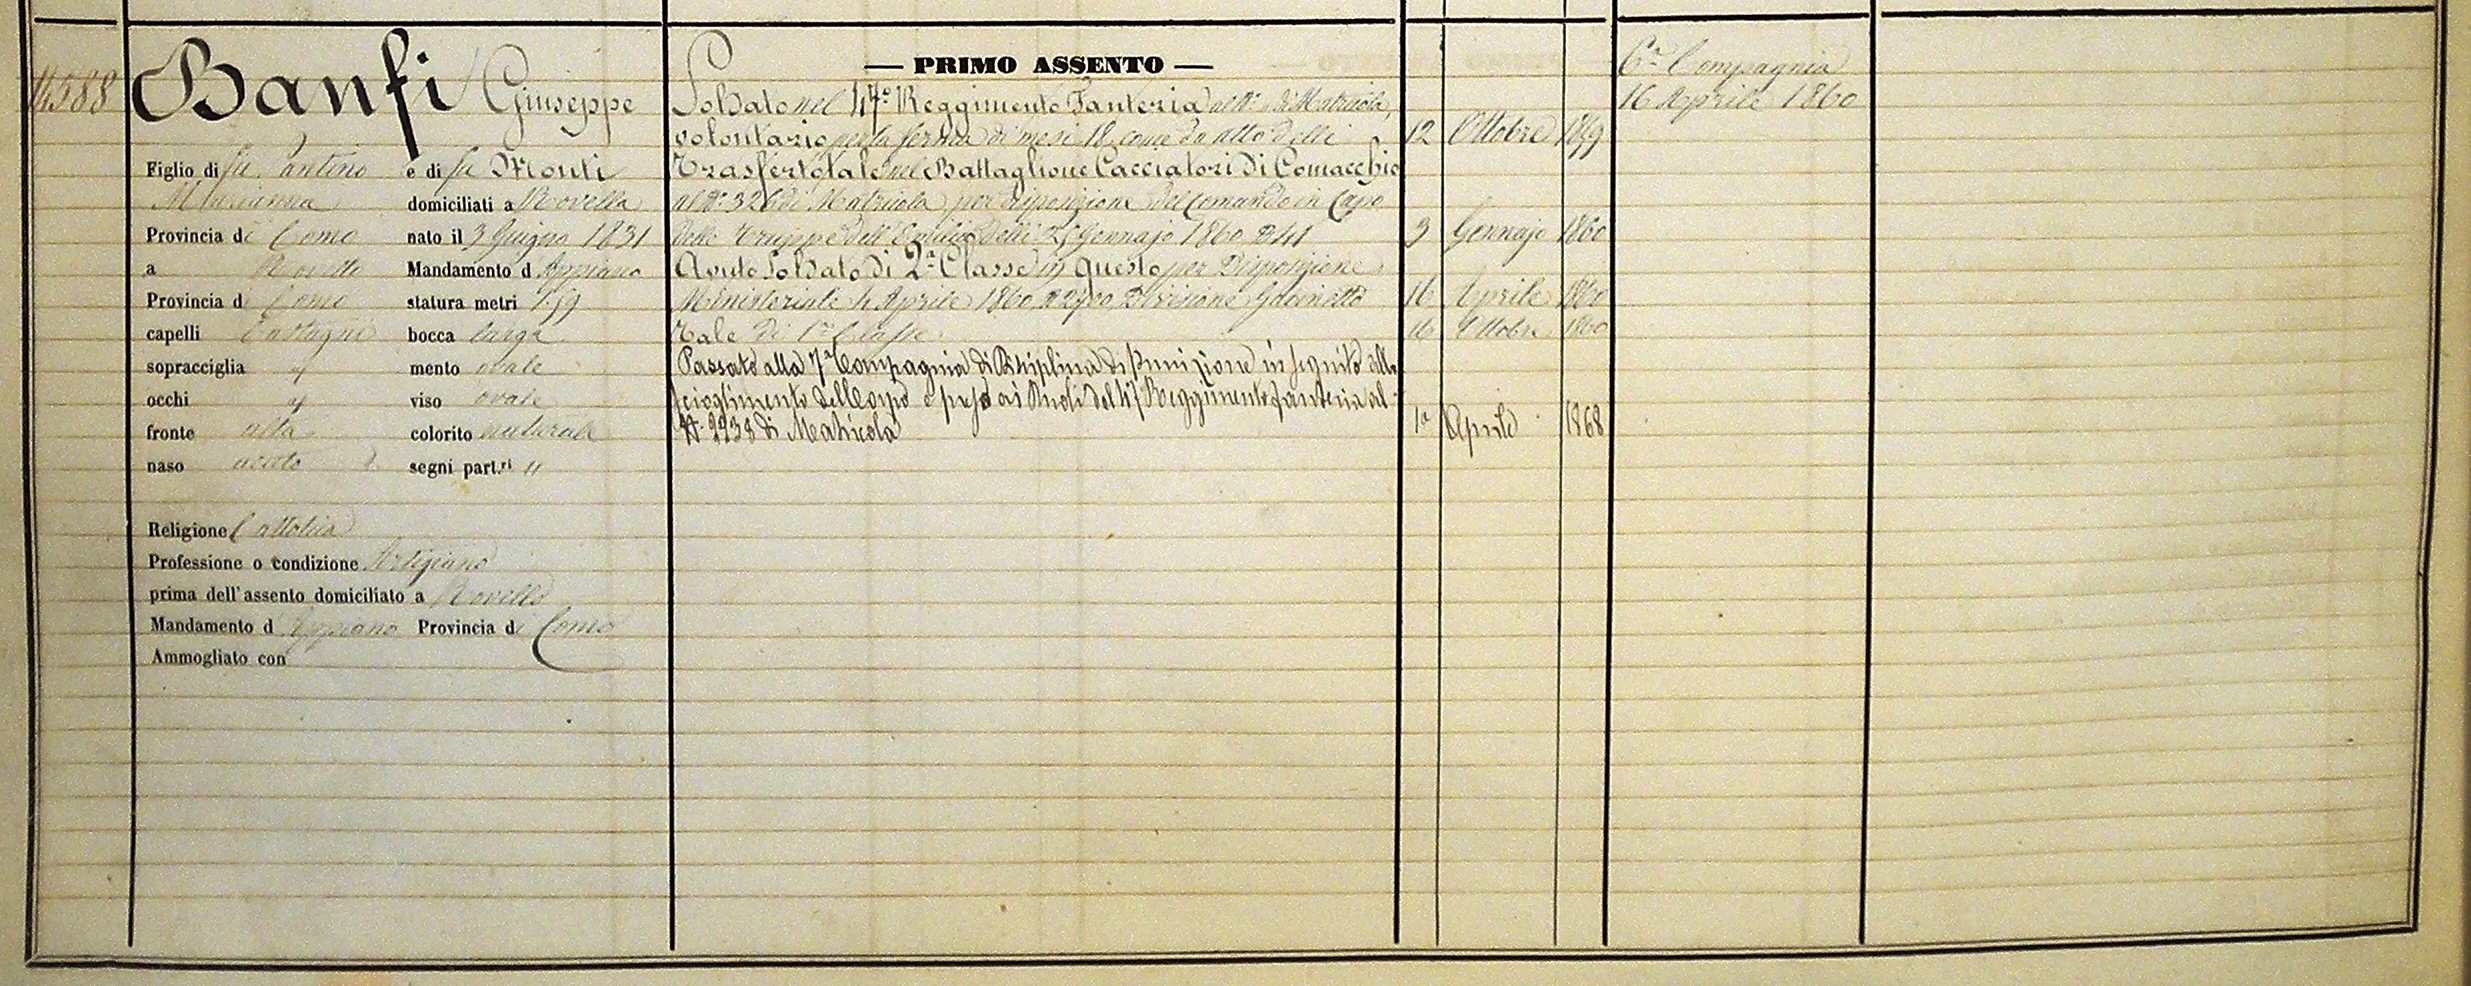 14588
Banfi Giuseppe
Figlio di fu Santino e di fu Monti
Marianna domiciliati a Rovella
Provincia di Como nato il 3 Giugno 1831
a Mandamento d Appiano
Provincia d Como statura metri 1.59
capelli Castagni bocca larga
sopracciglia mento ovale
occhi viso ovale
fronte alta colorito naturale
naso segni part.ri "
Religione Cattolica
Professione o condizione Artigiano
prima dell'assento domiciliato a Rovello
Mandamento d Appiano Provincia di Como
Ammogliato con
— PRIMO ASSENTO —
Soldato nel 47° Reggimento Fanteria al N° di Matricola,
volontario per la ferma di mesi 18 come da atto delli 12 Ottobre 1859
Trasferto tale nel Battaglione Cacciatori di Comacchio
al N° 326 di Matricola per disposizione del Comando in Capo
delle Truppe dell'Emilia delli 25 Gennajo 1860 N 41 3 Gennajo 1860
Avuto Soldato di 2a Classe in questo per Disposizione
Ministeriale 4 Aprile 1860, N 2900, Divisione Gabinetto 16 Aprile 1860
Tale di 1a Classe 16 Ottobre 1860
Passato alla 7a Compagnia di Disciplina di Punizione in seguito allo
scioglimento del Corpo e preso ai Ruoli del 47 Reggimento fanteria al
N. 2938 di Matricola 1° Aprile 1868
6a Compagnia
16 Aprile 1860